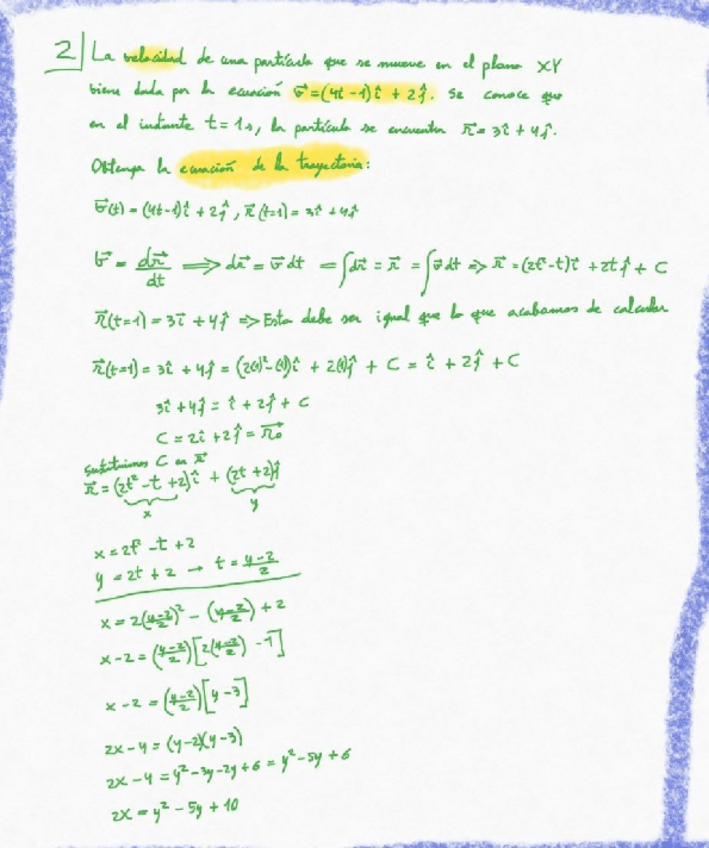 2 La velocidad de una partícula que se mueve en el plano XY
viene dada por la ecuación v⃗ = (4t-1)î + 2ĵ. Se conoce que
en el instante t = 1s, la partícula se encuentra r⃗ = 3î + 4ĵ.
Obtenga la ecuación de la trayectoria:
v⃗(t) = (4t-1)î + 2ĵ, r⃗(t=1) = 3î + 4ĵ
v⃗ = dr⃗/dt ⟹ dr⃗ = v⃗ dt = ∫dr⃗ = r⃗ = ∫v⃗ dt => r⃗ = (2t²-t)i⃗ + 2tĵ + C
r⃗(t=1) = 3i⃗ + 4ĵ => Esto debe ser igual que lo que acabamos de calcular
r⃗(t=1) = 3î + 4ĵ = (2(1)²-(1))î + 2(1)ĵ + C = î + 2ĵ + C
3î + 4ĵ = î + 2ĵ + C
C = 2î + 2ĵ = r⃗₀
sustituimos C en r⃗
r⃗ = (2t² - t + 2)î + (2t + 2)ĵ
x y
x = 2t² - t + 2
y = 2t + 2 → t = (y-2)/2
x = 2((y-2)/2)² - ((y-2)/2) + 2
x - 2 = ((y-2)/2)[2((y-2)/2) - 1]
x - 2 = ((y-2)/2)[y - 3]
2x - 4 = (y-2)(y-3)
2x - 4 = y² - 3y - 2y + 6 = y² - 5y + 6
2x = y² - 5y + 10